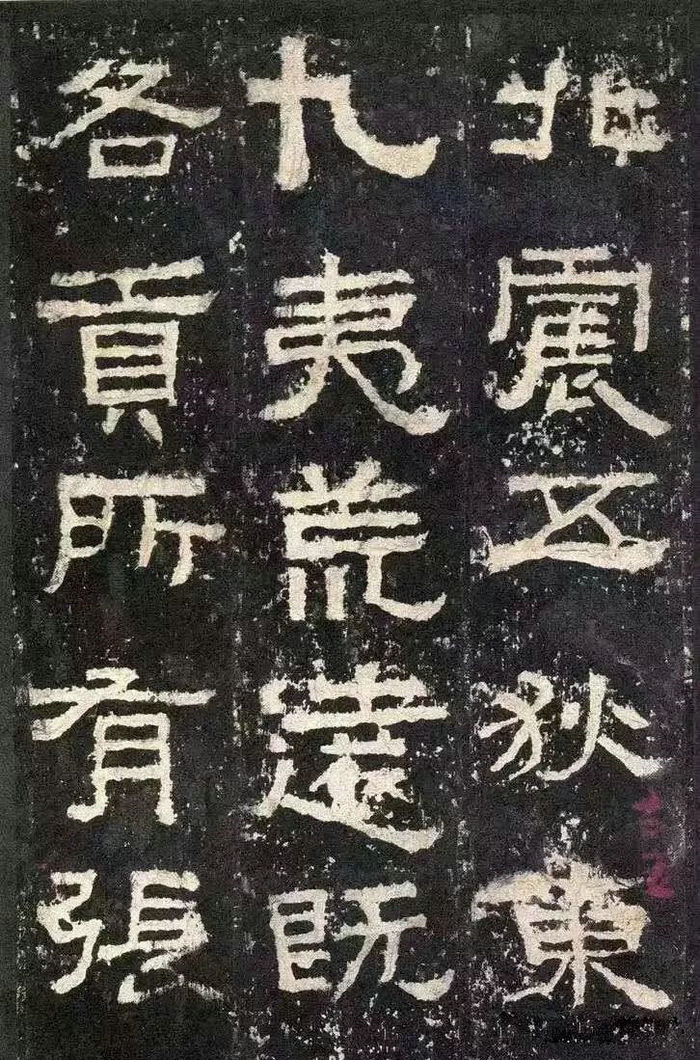 北震五狄東
九夷荒遠既
各貢所有張